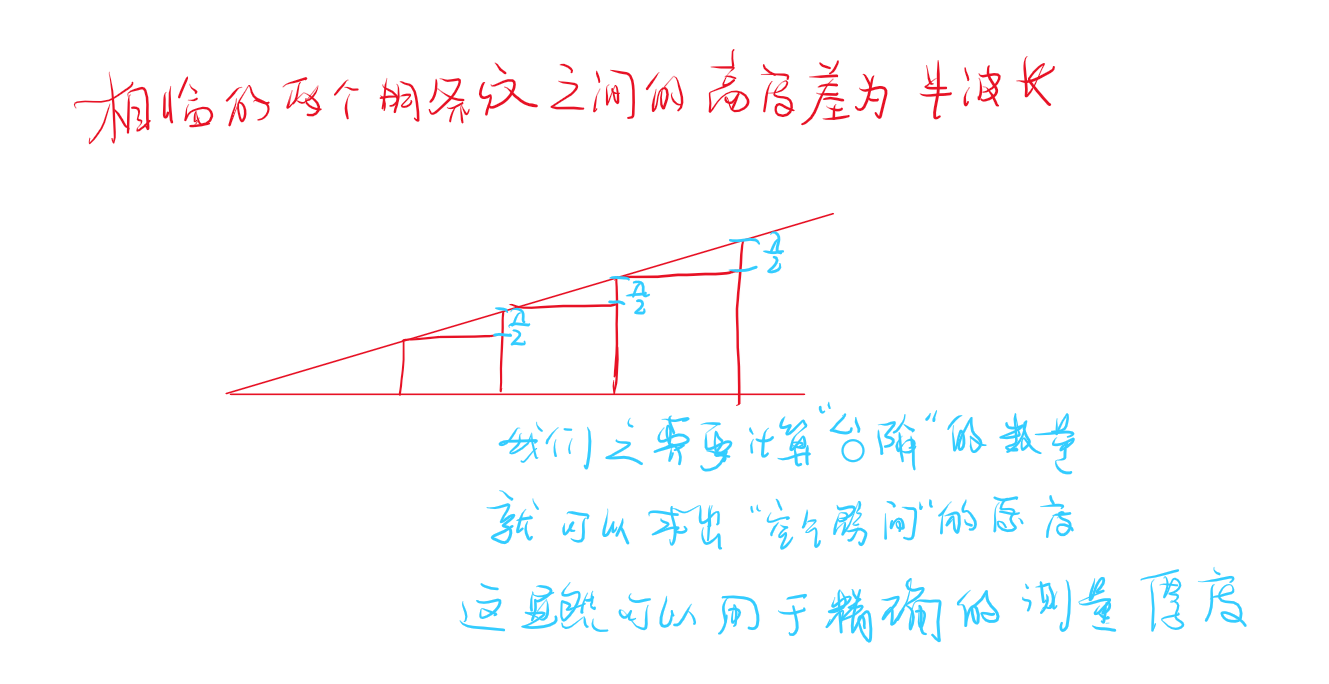 相临的两个明条纹之间的高度差为半波长
λ/2
λ/2
λ/2
我们之需要计算“台阶“的数量
就可以求出“空气劈间”的厚度
这显然可以用于精确的测量厚度